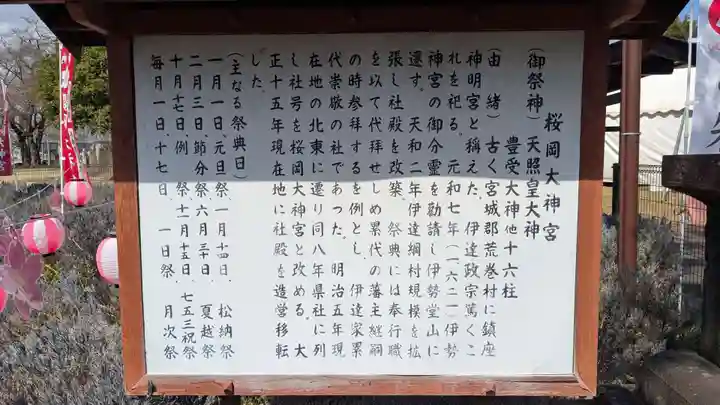 桜岡大神宮
(御祭神) 天照皇大神
豊受大神他十六柱
(由 緒) 古く宮城郡荒巻村に鎮座
神明宮と称えた。伊達政宗篤くこ
れを祀る。元和七年(一六二一)伊勢
神宮の御分霊を勧請し伊勢堂山に
還す。天和二年伊達綱村規模を拡
張し社殿を改築。祭典には奉行職
を以て代拝せしめ累代の藩主継嗣
の時参拝するを例とし、伊達家累
代崇敬の社であった。明治五年現
在地の北東に遷り同八年県社に列
し社号を桜岡大神宮と改める。大
正十五年現在地に社殿を造営移転
した。
(主なる祭典日)
一月一日、元旦祭、一月十四日、松納祭
二月三日、節分祭 六月三十日、夏越祭
十月十七日、例祭 十一月十五日、七五三祝祭
毎月一日十七日、一日祭、月次祭